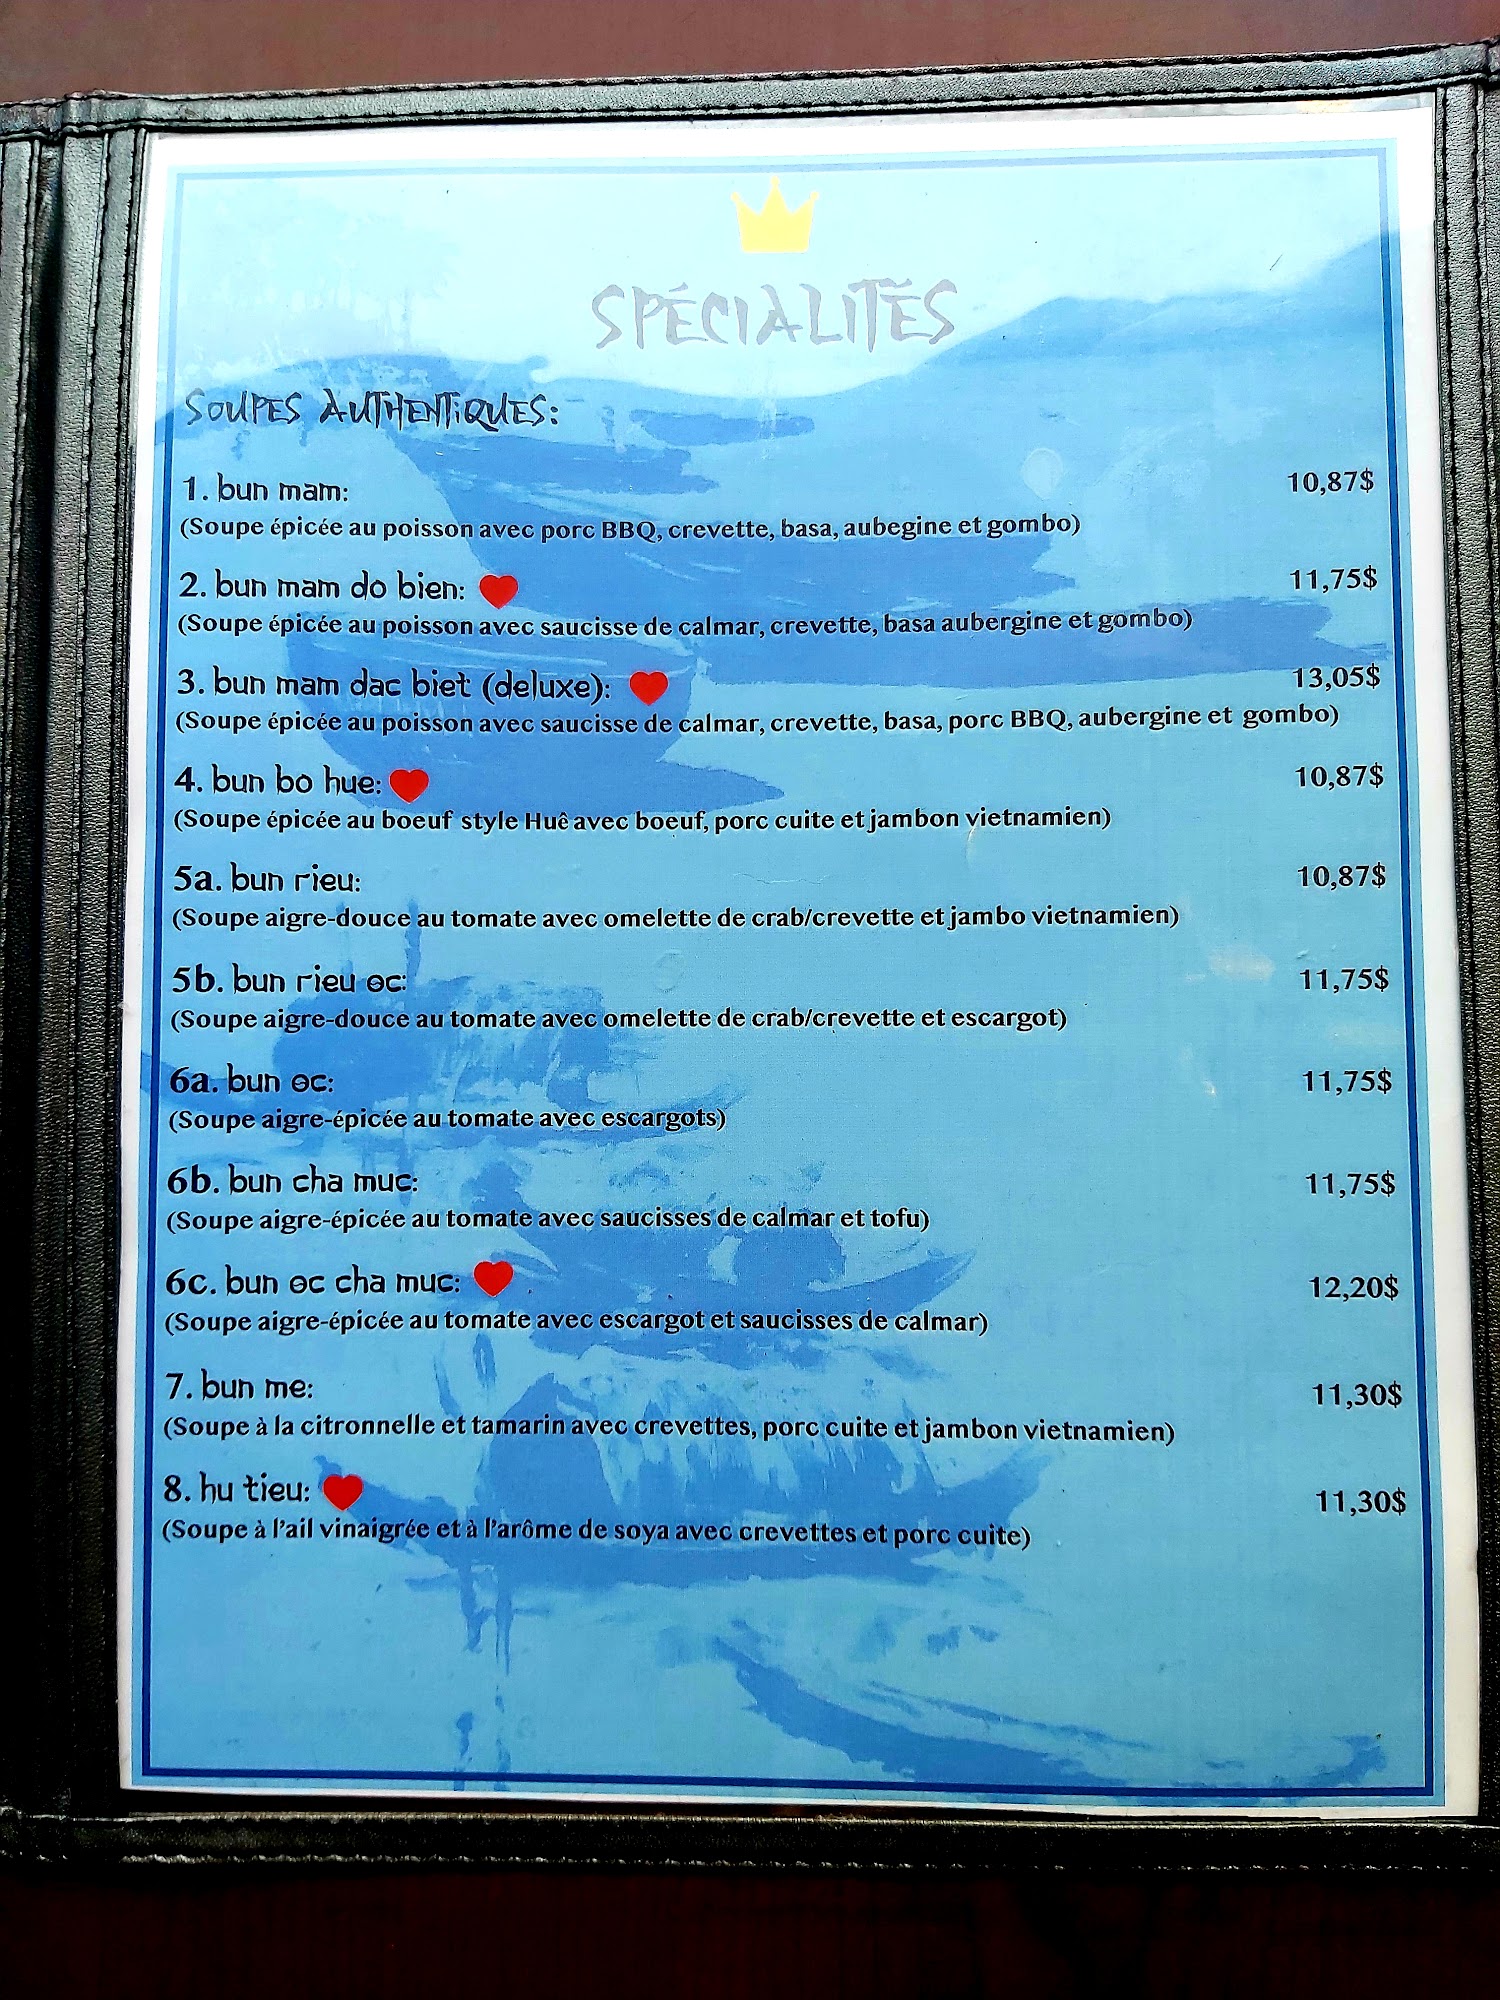 SPÉCIALITÉS
SOUPES AUTHENTIQUES:
1. bun mam: 10,87$
(Soupe épicée au poisson avec porc BBQ, crevette, basa, aubegine et gombo)
2. bun mam do bien: 11,75$
(Soupe épicée au poisson avec saucisse de calmar, crevette, basa aubergine et gombo)
3. bun mam dac biet (deluxe): 13,05$
(Soupe épicée au poisson avec saucisse de calmar, crevette, basa, porc BBQ, aubergine et gombo)
4. bun bo hue: 10,87$
(Soupe épicée au boeuf style Huê avec boeuf, porc cuite et jambon vietnamien)
5a. bun rieu: 10,87$
(Soupe aigre-douce au tomate avec omelette de crab/crevette et jambo vietnamien)
5b. bun rieu oc: 11,75$
(Soupe aigre-douce au tomate avec omelette de crab/crevette et escargot)
6a. bun oc: 11,75$
(Soupe aigre-épicée au tomate avec escargots)
6b. bun cha muc: 11,75$
(Soupe aigre-épicée au tomate avec saucisses de calmar et tofu)
6c. bun oc cha muc: 12,20$
(Soupe aigre-épicée au tomate avec escargot et saucisses de calmar)
7. bun me: 11,30$
(Soupe à la citronnelle et tamarin avec crevettes, porc cuite et jambon vietnamien)
8. hu tieu: 11,30$
(Soupe à l'ail vinaigrée et à l'arôme de soya avec crevettes et porc cuite)